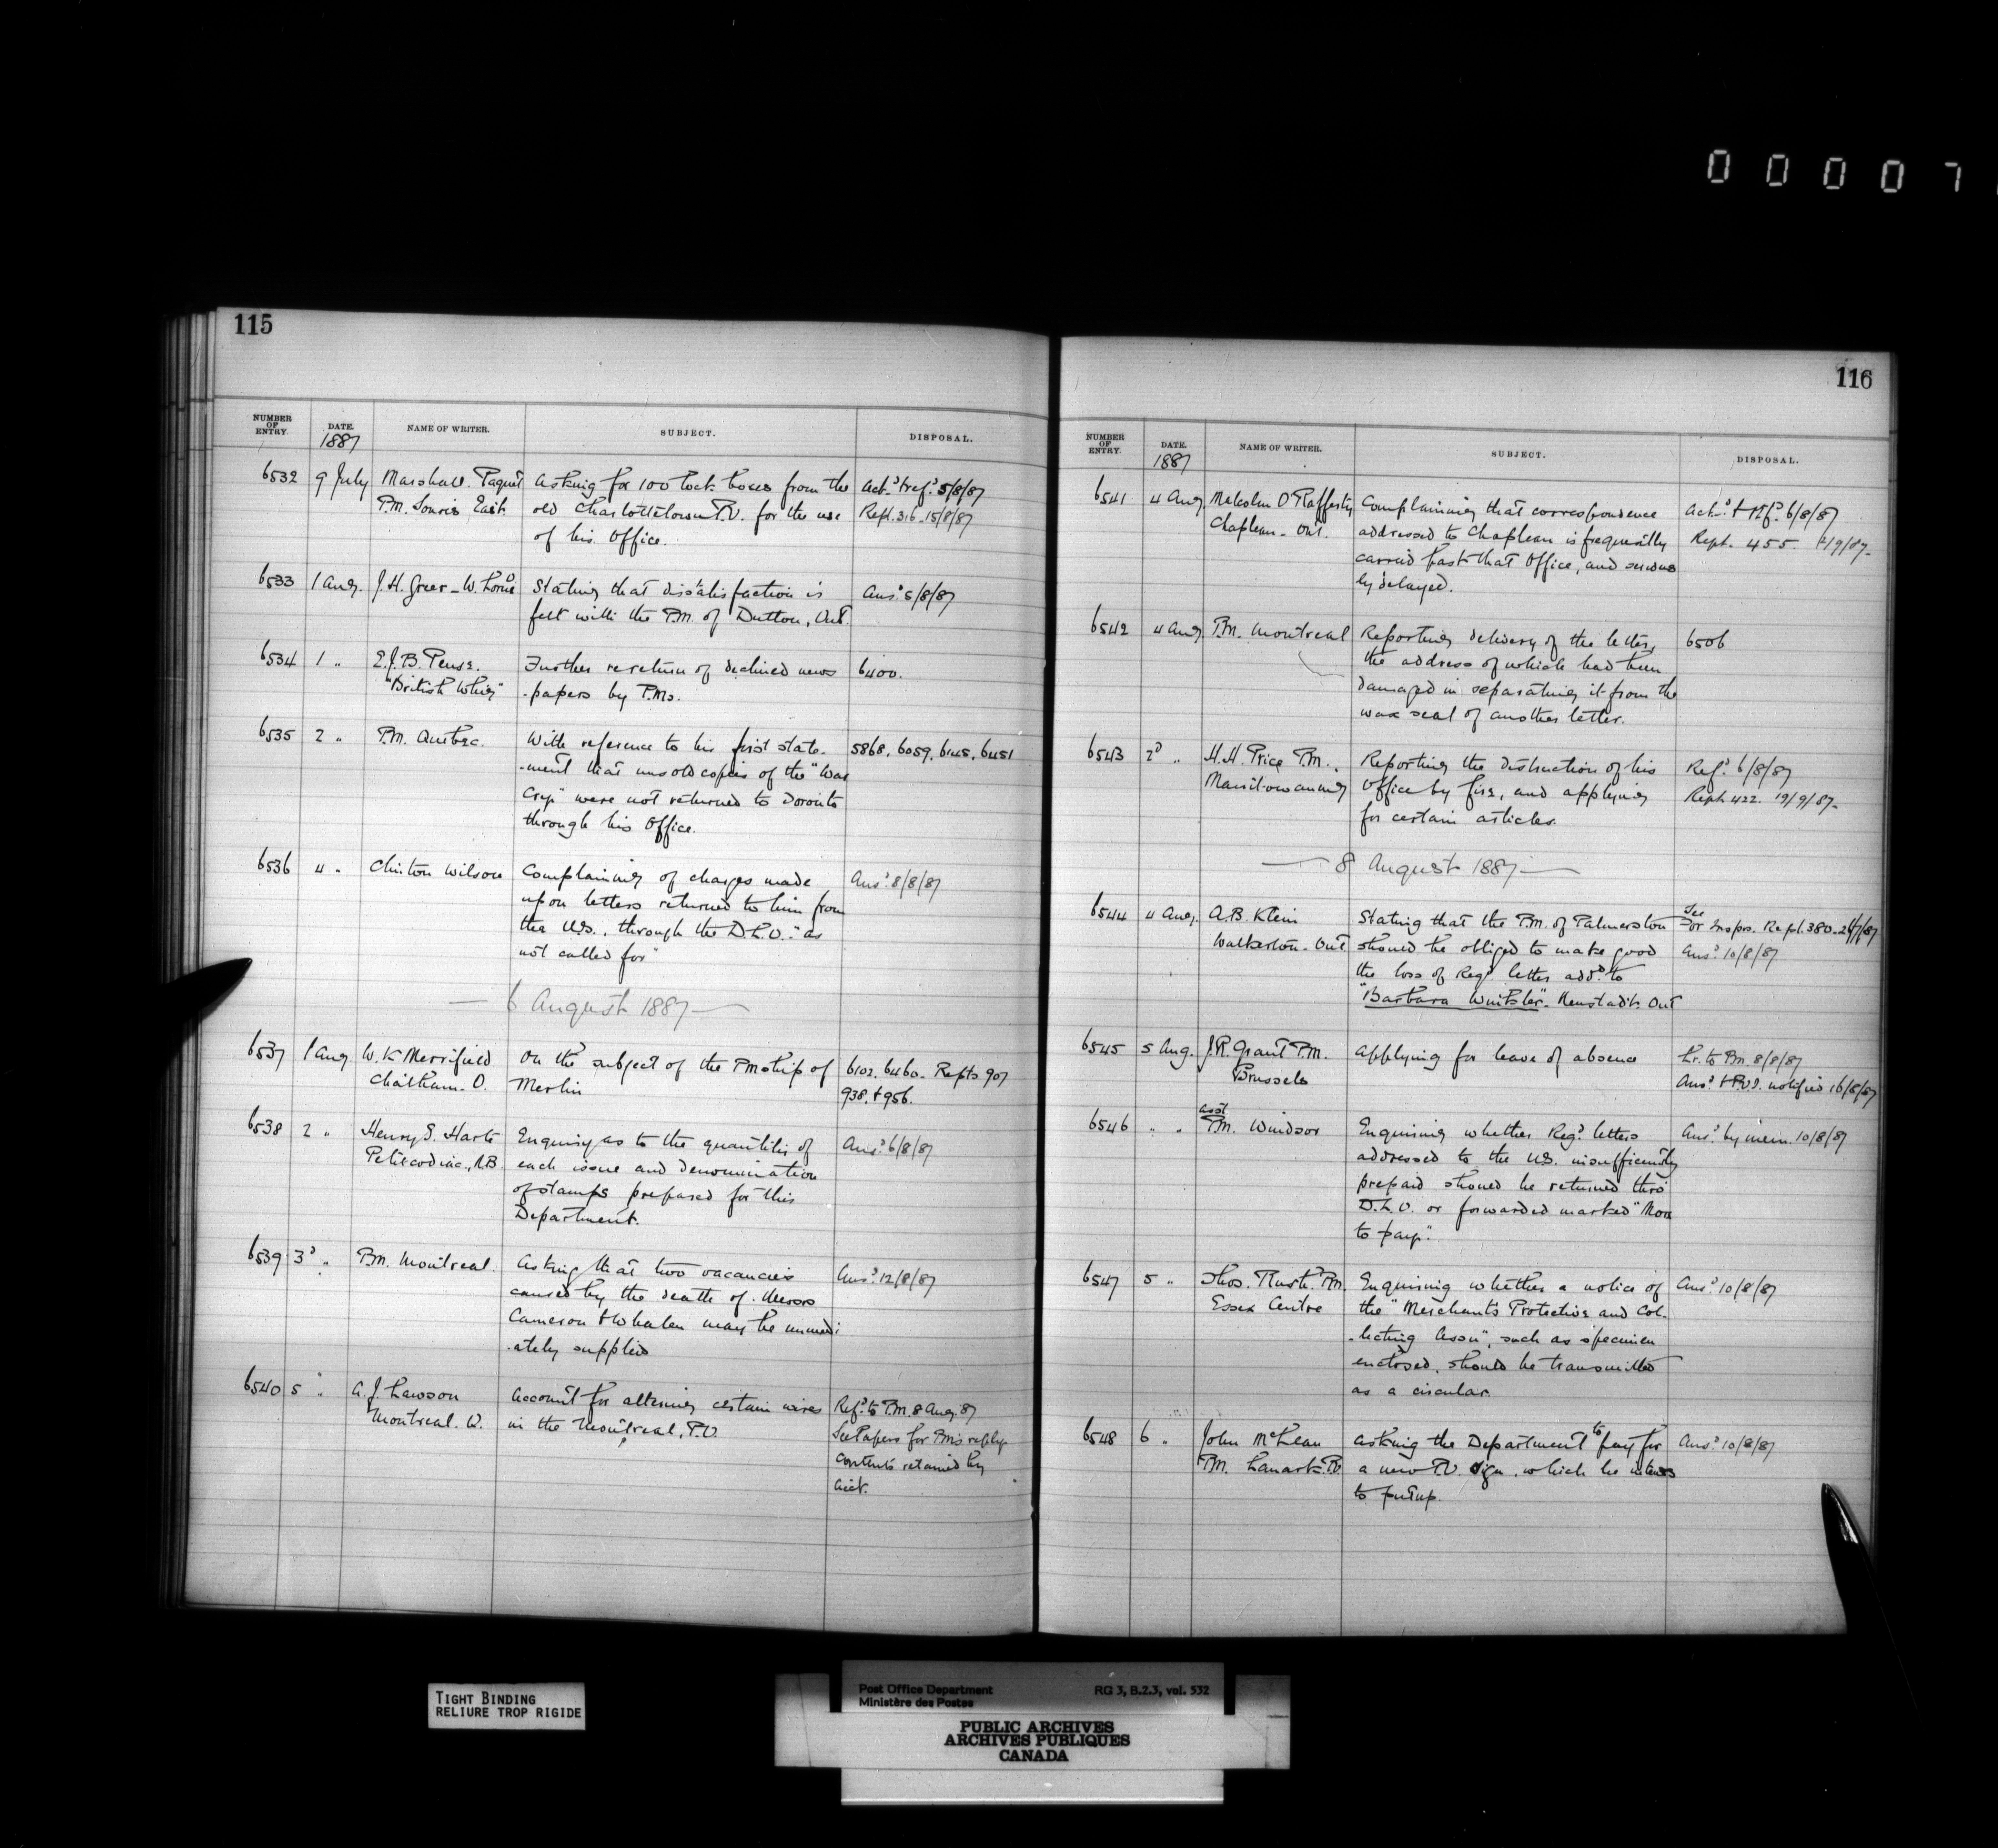 00007
115
NUMBER OF ENTRY. DATE. 1887 NAME OF WRITER. SUBJECT. DISPOSAL.
6532 9 July Marshall Paquet Asking for 100 lock boxes from the Ack.d & ref.d 5/8/87
P.M. Souris East. old Charlottetown P.O. for the use Rept. 316 - 15/8/87
of his Office.
6533 1 Aug. J.H. Greer - W. Lorne Stating that dissatisfaction is Ans.d 5/8/87
felt with the P.M. of Dutton, Ont.
6534 1 " E.J.B. Pense. Further re return of declined news 6400.
"British Whig" -papers by P.Ms.
6535 2 " P.M. Quebec. With reference to his first state- 5868, 6059, 6145, 6451
-ment that unsold copies of the "War
Cry" were not returned to Toronto
through his Office.
6536 4 " Clinton Wilson Complaining of charges made Ans.d 8/8/87
upon letters returned to him from
the U.S., through the D.L.O. "as
not called for"
— 6 August 1887 —
6537 1 Aug W.K Merrifield On the subject of the PMship of 6102. 6460. Repts 907
Chatham. O. Merlin 938. & 956.
6538 2 " Henry S. Harte Enquiry as to the quantities of Ans.d 6/8/87
Petitcodiac, N.B. each issue and denomination
of stamps prepared for this
Department.
6539 3d " P.M. Montreal. Asking that two vacancies Ans.d 12/8/87
caused by the death of Messrs
Cameron & Whalen may be immedi
-ately supplied
6540 5 " A.J. Lawson Account for altering certain wires Ref.d to P.M. 8 Aug. 87
Montreal. W. in the Montreal, P.O. See Papers for PM's reply
contents retained by
Acct.
116
NUMBER OF ENTRY. DATE. 1887 NAME OF WRITER. SUBJECT. DISPOSAL.
6541 4 Aug Malcolm O'Rafferty Complaining that correspondence Ack.d & ref.d 6/8/87
Chapleau - Ont. addressed to Chapleau is frequently Rept. 455.
carried past that Office, and serious
ly delayed.
6542 4 Aug P.M. Montreal Reporting delivery of the letter, 6506
the address of which had been
damaged in separating it from the
wax seal of another letter.
6543 2d " H.H. Price P.M. Reporting the destruction of his Ref.d 6/8/87
Manitowaning Office by fire, and applying Rept 422. 19/9/87-
for certain articles.
— 8 August 1887 —
6544 4 Aug. A.B. Klein Stating that the P.M. of Palmerston See Tor Inspr. Rept. 380
Walkerton - Ont should be obliged to make good Ans.d 10/8/87
the loss of Reg.d letter add.d to
"Barbara Winkler" - Neustadt Ont
6545 5 Aug. J.R. Grant P.M. Applying for leave of absence Lr. to Pm 8/8/87
Brussels Ans.d & P.O.I. notified 16/8/87
6546 " " Asst P.M. Windsor Enquiring whether Reg.d letters Ans.d by mem. 10/8/87
addressed to the U.S. insufficiently
prepaid should be returned thro'
D.L.O. or forwarded marked "More
to pay".
6547 5 " Thos. Rush. P.M. Enquiring whether a notice of Ans.d 10/8/87
Essex Centre the "Merchants Protective and Col-
-lecting Assn", such as specimen
enclosed, should be transmitted
as a circular.
6548 6 " John McLean Asking the Department to pay for Ans.d 10/8/87
P.M. Lanark. O. a new P.O. sign, which he intends
to put up.
TIGHT BINDING
RELIURE TROP RIGIDE
Post Office Department RG 3, B.2.3, vol. 532
Ministère des Postes
PUBLIC ARCHIVES
ARCHIVES PUBLIQUES
CANADA